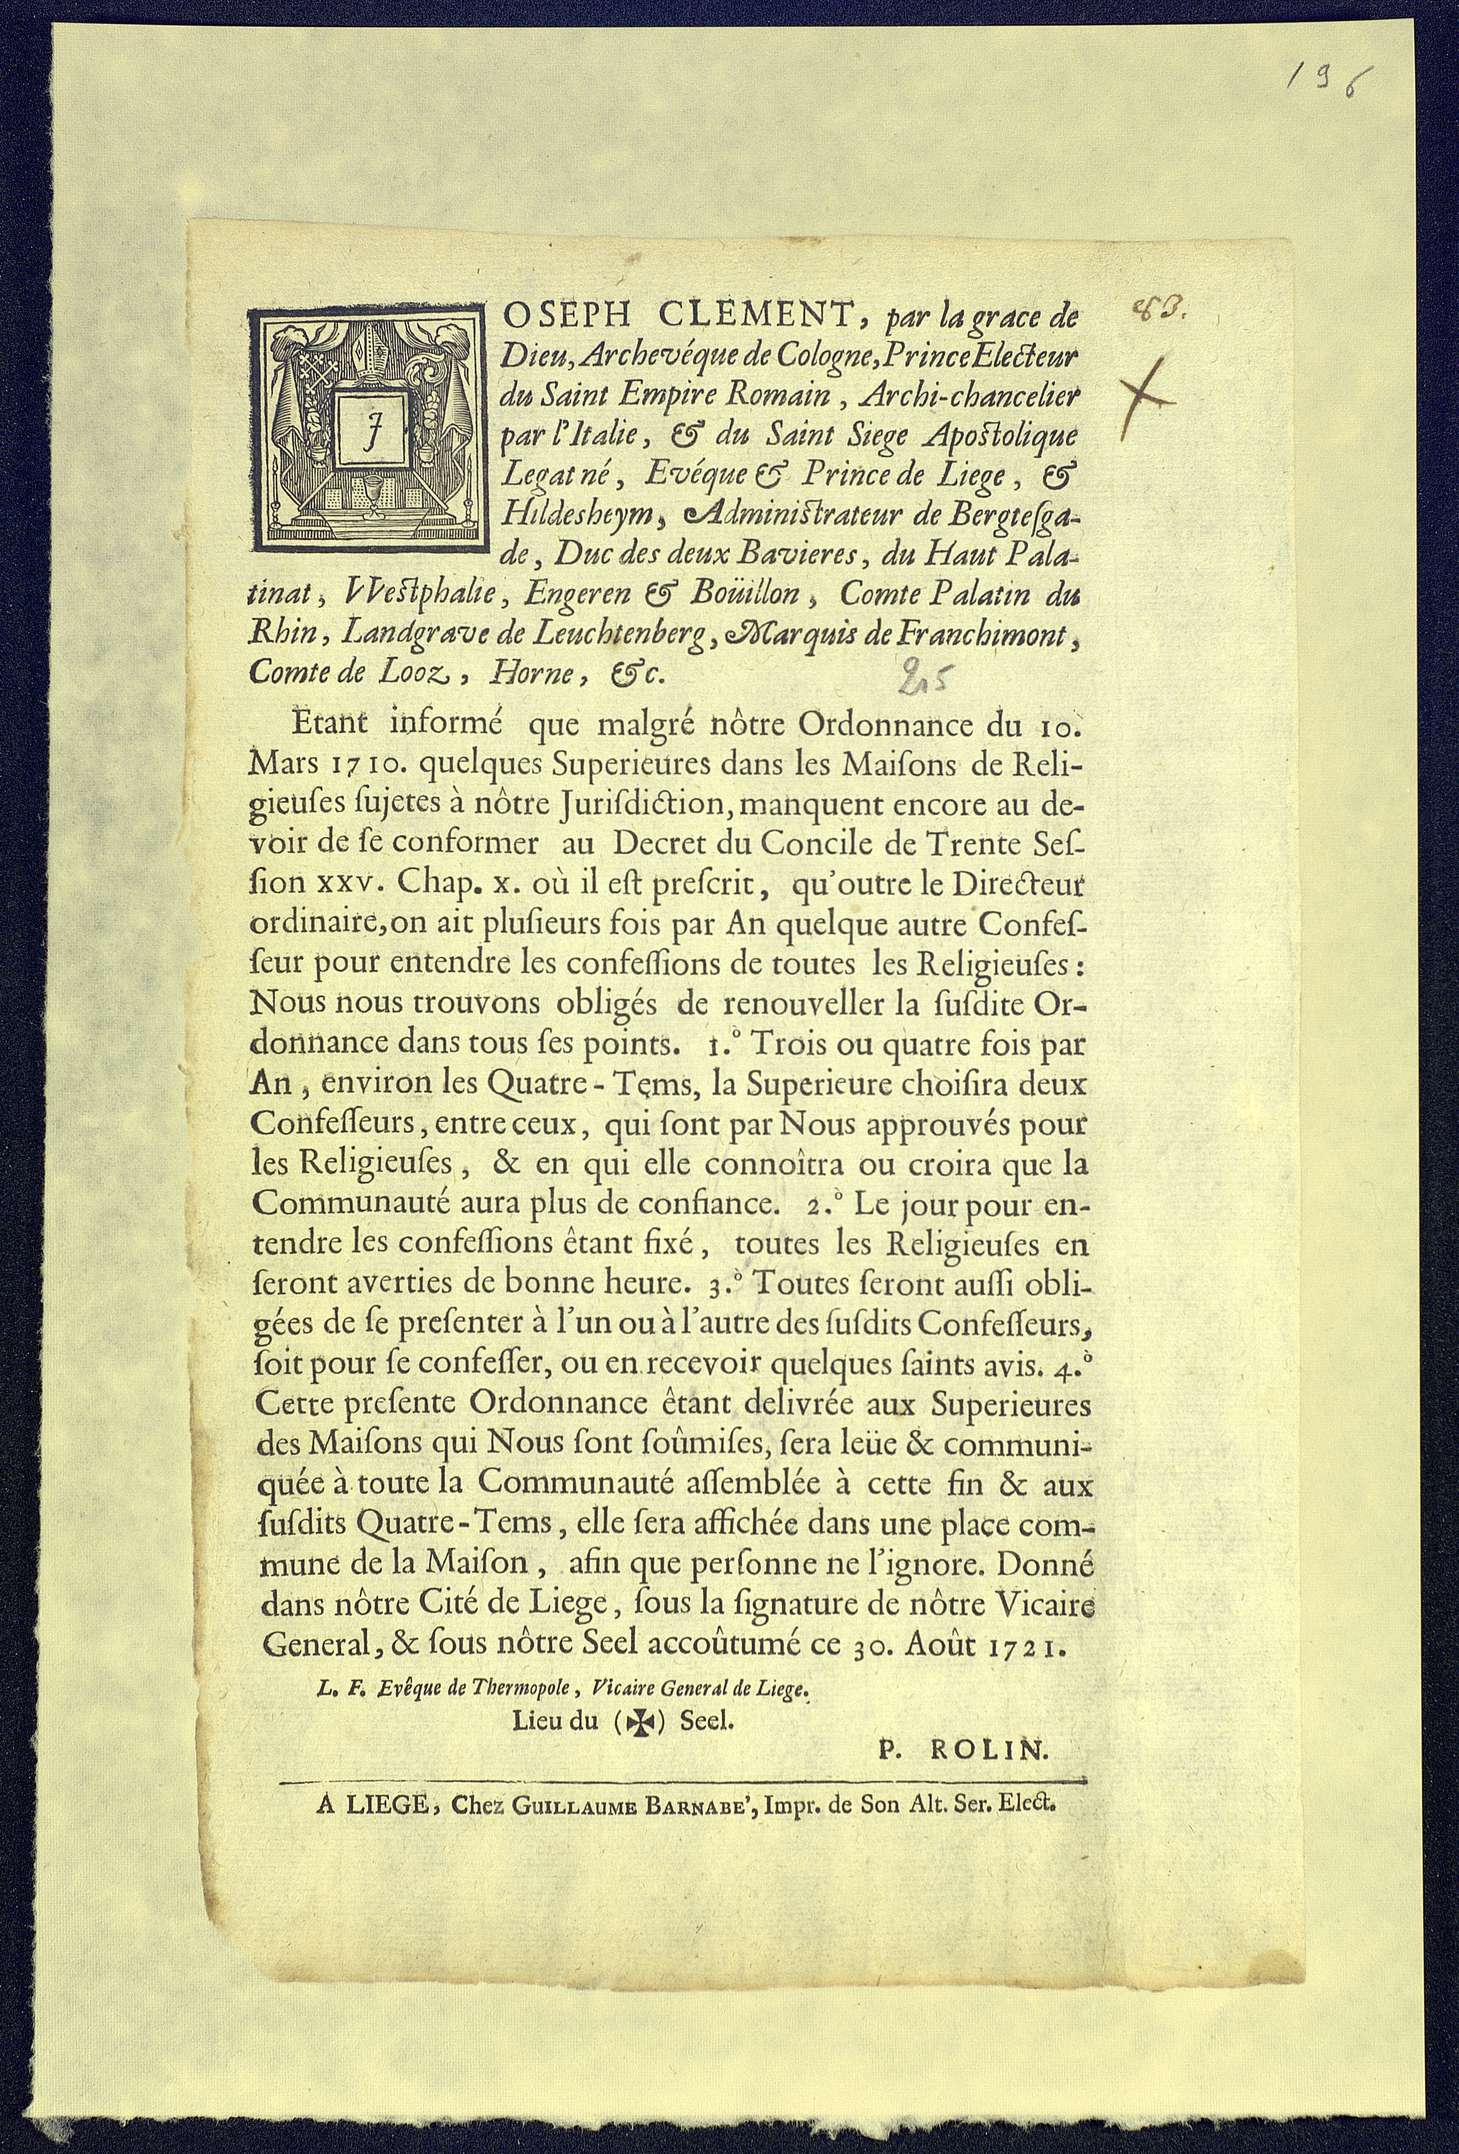 196
JOSEPH CLEMENT, par la grace de
83.
Dieu, Archevéque de Cologne, Prince Electeur
du Saint Empire Romain, Archi-chancelier
par l'Italie, & du Saint Siege Apostolique
Legat né, Evéque & Prince de Liege, &
Hildesheym, Administrateur de Bergtesga-
de, Duc des deux Bavieres, du Haut Pala-
tinat, VVestphalie, Engeren & Boüillon, Comte Palatin du
Rhin, Landgrave de Leuchtenberg, Marquis de Franchimont,
Comte de Looz, Horne, &c.
Etant informé que malgré nôtre Ordonnance du 10.
Mars 1710. quelques Superieures dans les Maiſons de Reli-
gieuſes ſujetes à nôtre Juriſdiction, manquent encore au de-
voir de ſe conformer au Decret du Concile de Trente Seſ-
ſion XXV. Chap. X. où il eſt preſcrit, qu'outre le Directeur
ordinaire, on ait pluſieurs fois par An quelque autre Confeſ-
ſeur pour entendre les confeſſions de toutes les Religieuſes:
Nous nous trouvons obligés de renouveller la ſuſdite Or-
donnance dans tous ſes points. 1.° Trois ou quatre fois par
An, environ les Quatre-Tems, la Superieure choiſira deux
Confeſſeurs, entre ceux, qui ſont par Nous approuvés pour
les Religieuſes, & en qui elle connoîtra ou croira que la
Communauté aura plus de confiance. 2.° Le jour pour en-
tendre les confeſſions êtant fixé, toutes les Religieuſes en
ſeront averties de bonne heure. 3.° Toutes ſeront auſſi obli-
gées de ſe preſenter à l'un ou à l'autre des ſuſdits Confeſſeurs,
ſoit pour ſe confeſſer, ou en recevoir quelques ſaints avis. 4.°
Cette preſente Ordonnance êtant delivrée aux Superieures
des Maiſons qui Nous ſont ſoûmiſes, ſera leüe & communi-
quée à toute la Communauté aſſemblée à cette fin & aux
ſuſdits Quatre-Tems, elle ſera affichée dans une place com-
mune de la Maiſon, afin que perſonne ne l'ignore. Donné
dans nôtre Cité de Liege, ſous la ſignature de nôtre Vicaire
General, & ſous nôtre Seel accoûtumé ce 30. Août 1721.
L. F. Evêque de Thermopole, Vicaire General de Liege.
Lieu du (✠) Seel.
P. ROLIN.
A LIEGE, Chez GUILLAUME BARNABE', Impr. de Son Alt. Ser. Elect.